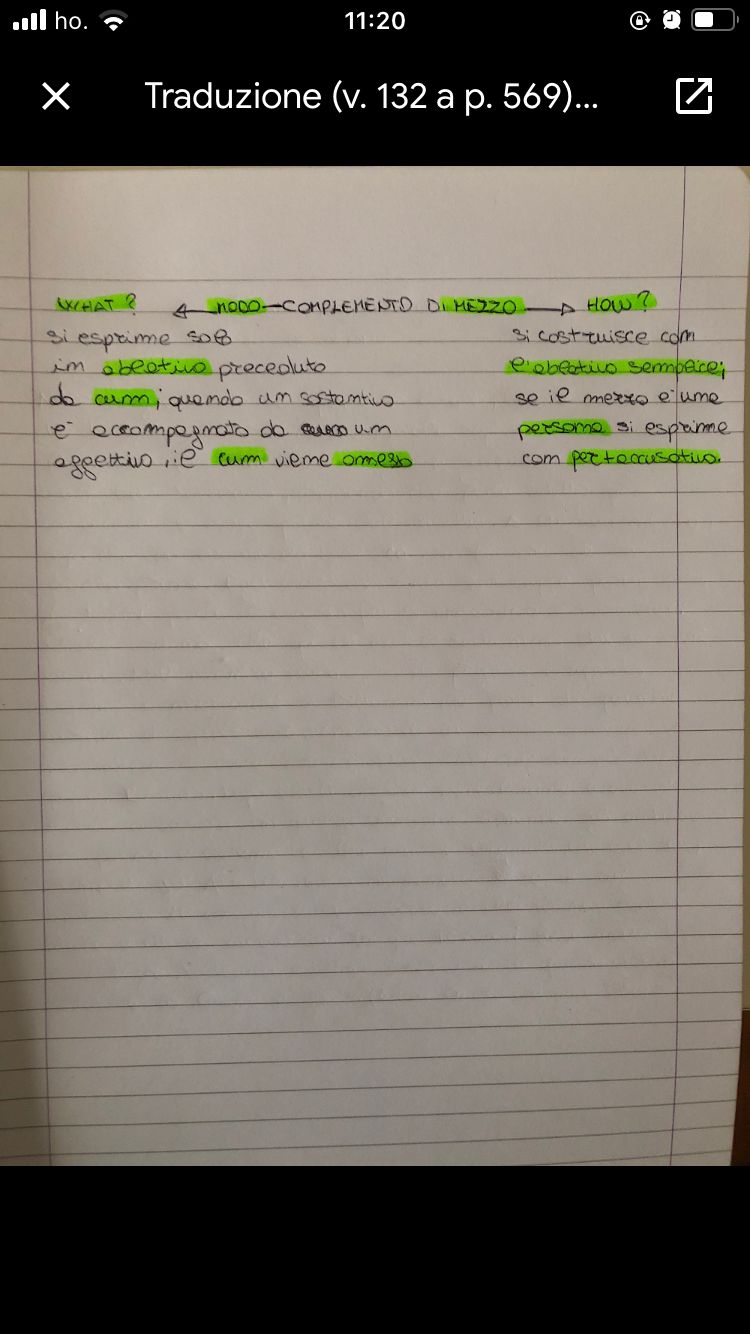 ho. 11:20
Traduzione (v. 132 a p. 569)...
WHAT? MODO COMPLEMENTO DI MEZZO HOW?
si esprime solo si costruisce con
in ablativo preceduto l'ablativo semplice;
da cum; quando un sostantivo se il mezzo è una
è accompagnato da un persona si esprime
aggettivo, il cum viene omesso con per+accusativo.